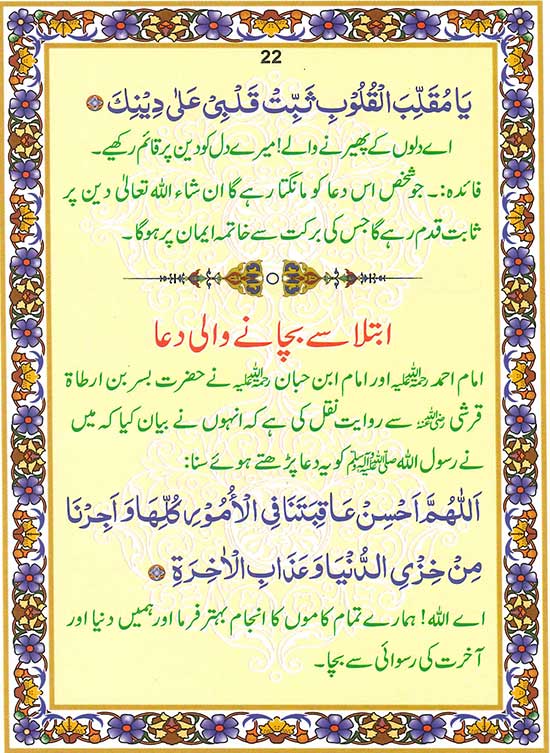 22
يَا مُقَلِّبَ الْقُلُوْبِ ثَبِّتْ قَلْبِىْ عَلٰى دِيْنِكَ
اے دلوں کے پھیرنے والے! میرے دل کو دین پر قائم رکھیے۔
فائدہ:۔ جو شخص اس دعا کو مانگتا رہے گا ان شاء اللہ تعالیٰ دین پر
ثابت قدم رہے گا جس کی برکت سے خاتمہ ایمان پر ہوگا۔
ابتلا سے بچانے والی دعا
امام احمد رحمۃ اللہ علیہ اور امام ابن حبان رحمۃ اللہ علیہ نے حضرت بسر بن ارطاۃ
قرشی رضی اللہ عنہ سے روایت نقل کی ہے کہ انہوں نے بیان کیا کہ میں
نے رسول اللہ صلی اللہ علیہ وسلم کو یہ دعا پڑھتے ہوئے سنا:
اَللّٰهُمَّ اَحْسِنْ عَاقِبَتَنَا فِى الْاُمُوْرِ كُلِّهَا وَاَجِرْنَا
مِنْ خِزْىِ الدُّنْيَا وَعَذَابِ الْاٰخِرَةِ
اے اللہ! ہمارے تمام کاموں کا انجام بہتر فرما اور ہمیں دنیا اور
آخرت کی رسوائی سے بچا۔